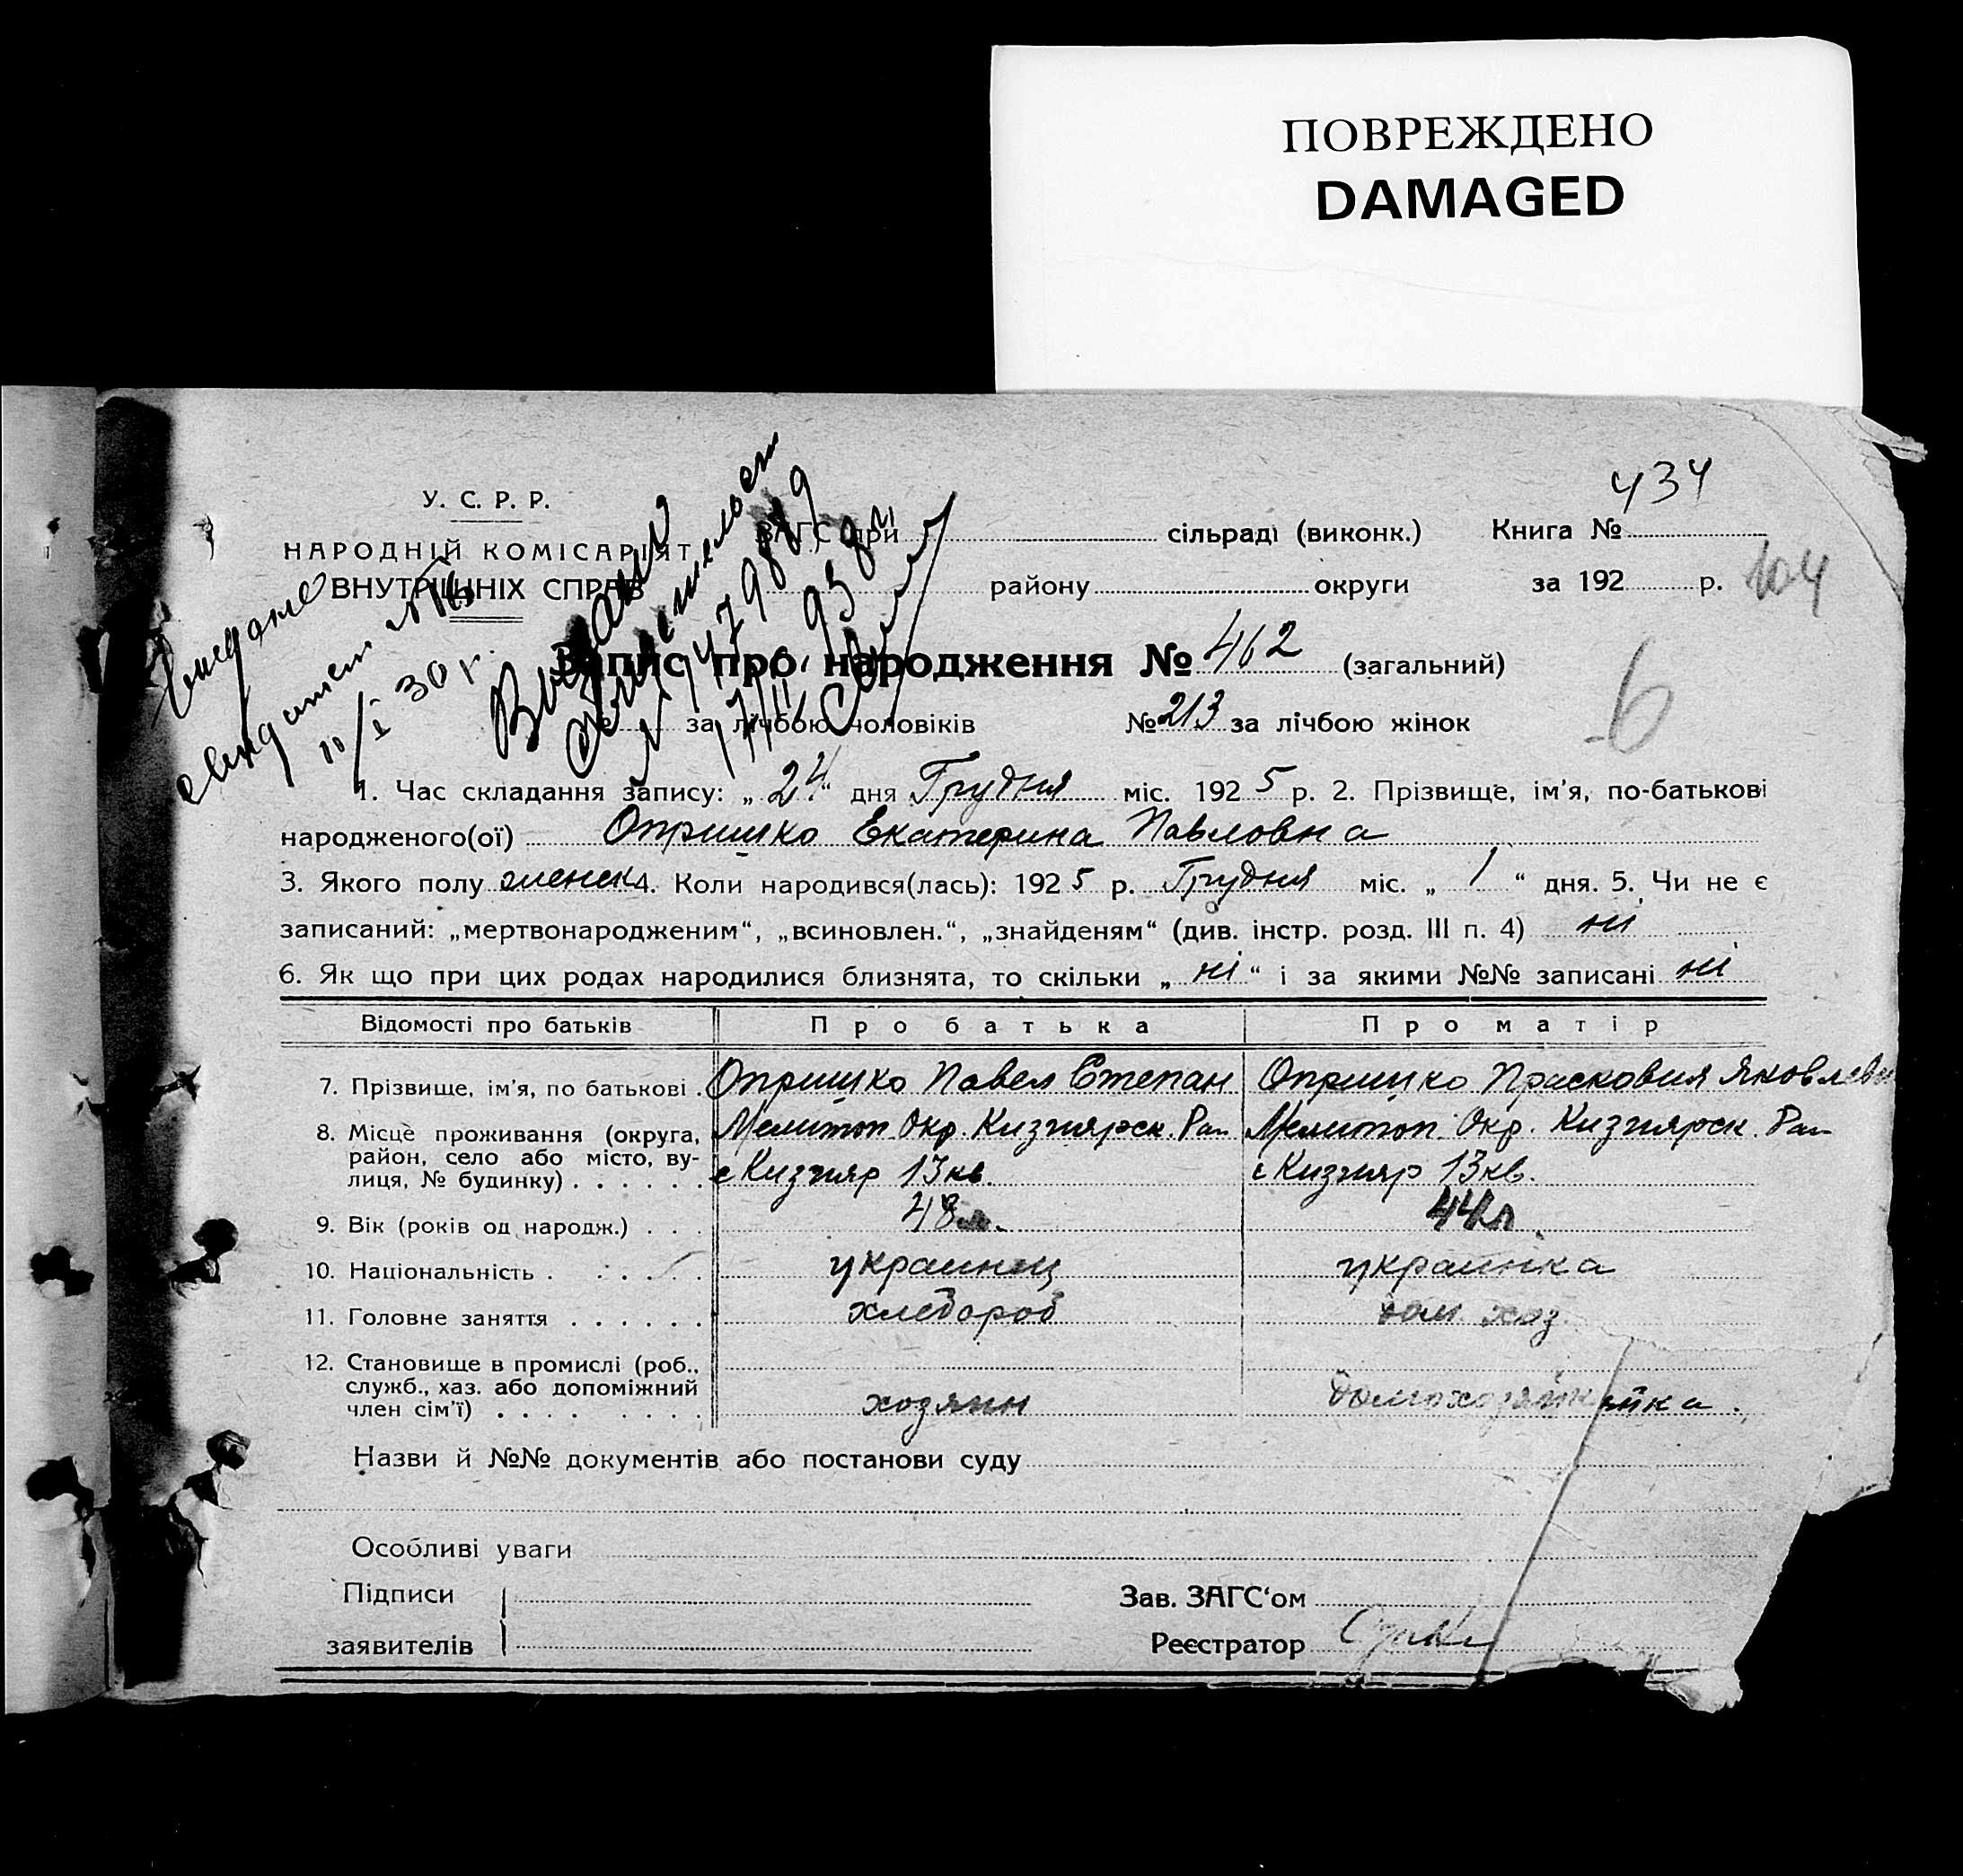 ПОВРЕЖДЕНО
DAMAGED
434
У. С. Р. Р.
НАРОДНІЙ КОМІСАРІЯТ
ВНУТРІШНІХ СПРАВ
ЗАГС при сільраді (виконк.) Книга №
району округи за 192 р. 104
Запис про народження № 462 (загальний)
6
за лічбою чоловіків № 213 за лічбою жінок
10/I 30 г.
1. Час складання запису: „24“ дня Грудня міс. 1925 р. 2. Прізвище, ім'я, по-батькові
народженого(ої) Опришко Екатерина Павловна
3. Якого полу женск 4. Коли народився(лась): 1925 р. Грудня міс. „1“ дня. 5. Чи не є
записаний: „мертвонародженим“, „всиновлен.“, „знайденям“ (див. інстр. розд. III п. 4) ні
6. Як що при цих родах народилися близнята, то скільки „ні“ і за якими №№ записані ні
Відомості про батьків Про батька Про матір
7. Прізвище, ім'я, по батькові . Опришко Павел Степан Опришко Прасковия Яковлевн
8. Місце проживання (округа, Мелитоп. Окр. Кизиярск. Ра Мелитоп. Окр. Кизиярск. Ра
район, село або місто, ву- с Кизияр 13 кв. с Кизияр 13 кв.
лиця, № будинку) . . . . . .
9. Вік (років од народж.) . . . 48 л. 44 л
10. Національність . . . . . . украинец украинка
11. Головне заняття . . . . . . хлебороб дом. хоз.
12. Становище в промислі (роб.,
служб., хаз. або допоміжний
член сім'ї) . . . . . . . . хозяин домохозяйка.
Назви й №№ документів або постанови суду
Особливі уваги
Підписи Зав. ЗАГС‘ом
заявителів Реєстратор